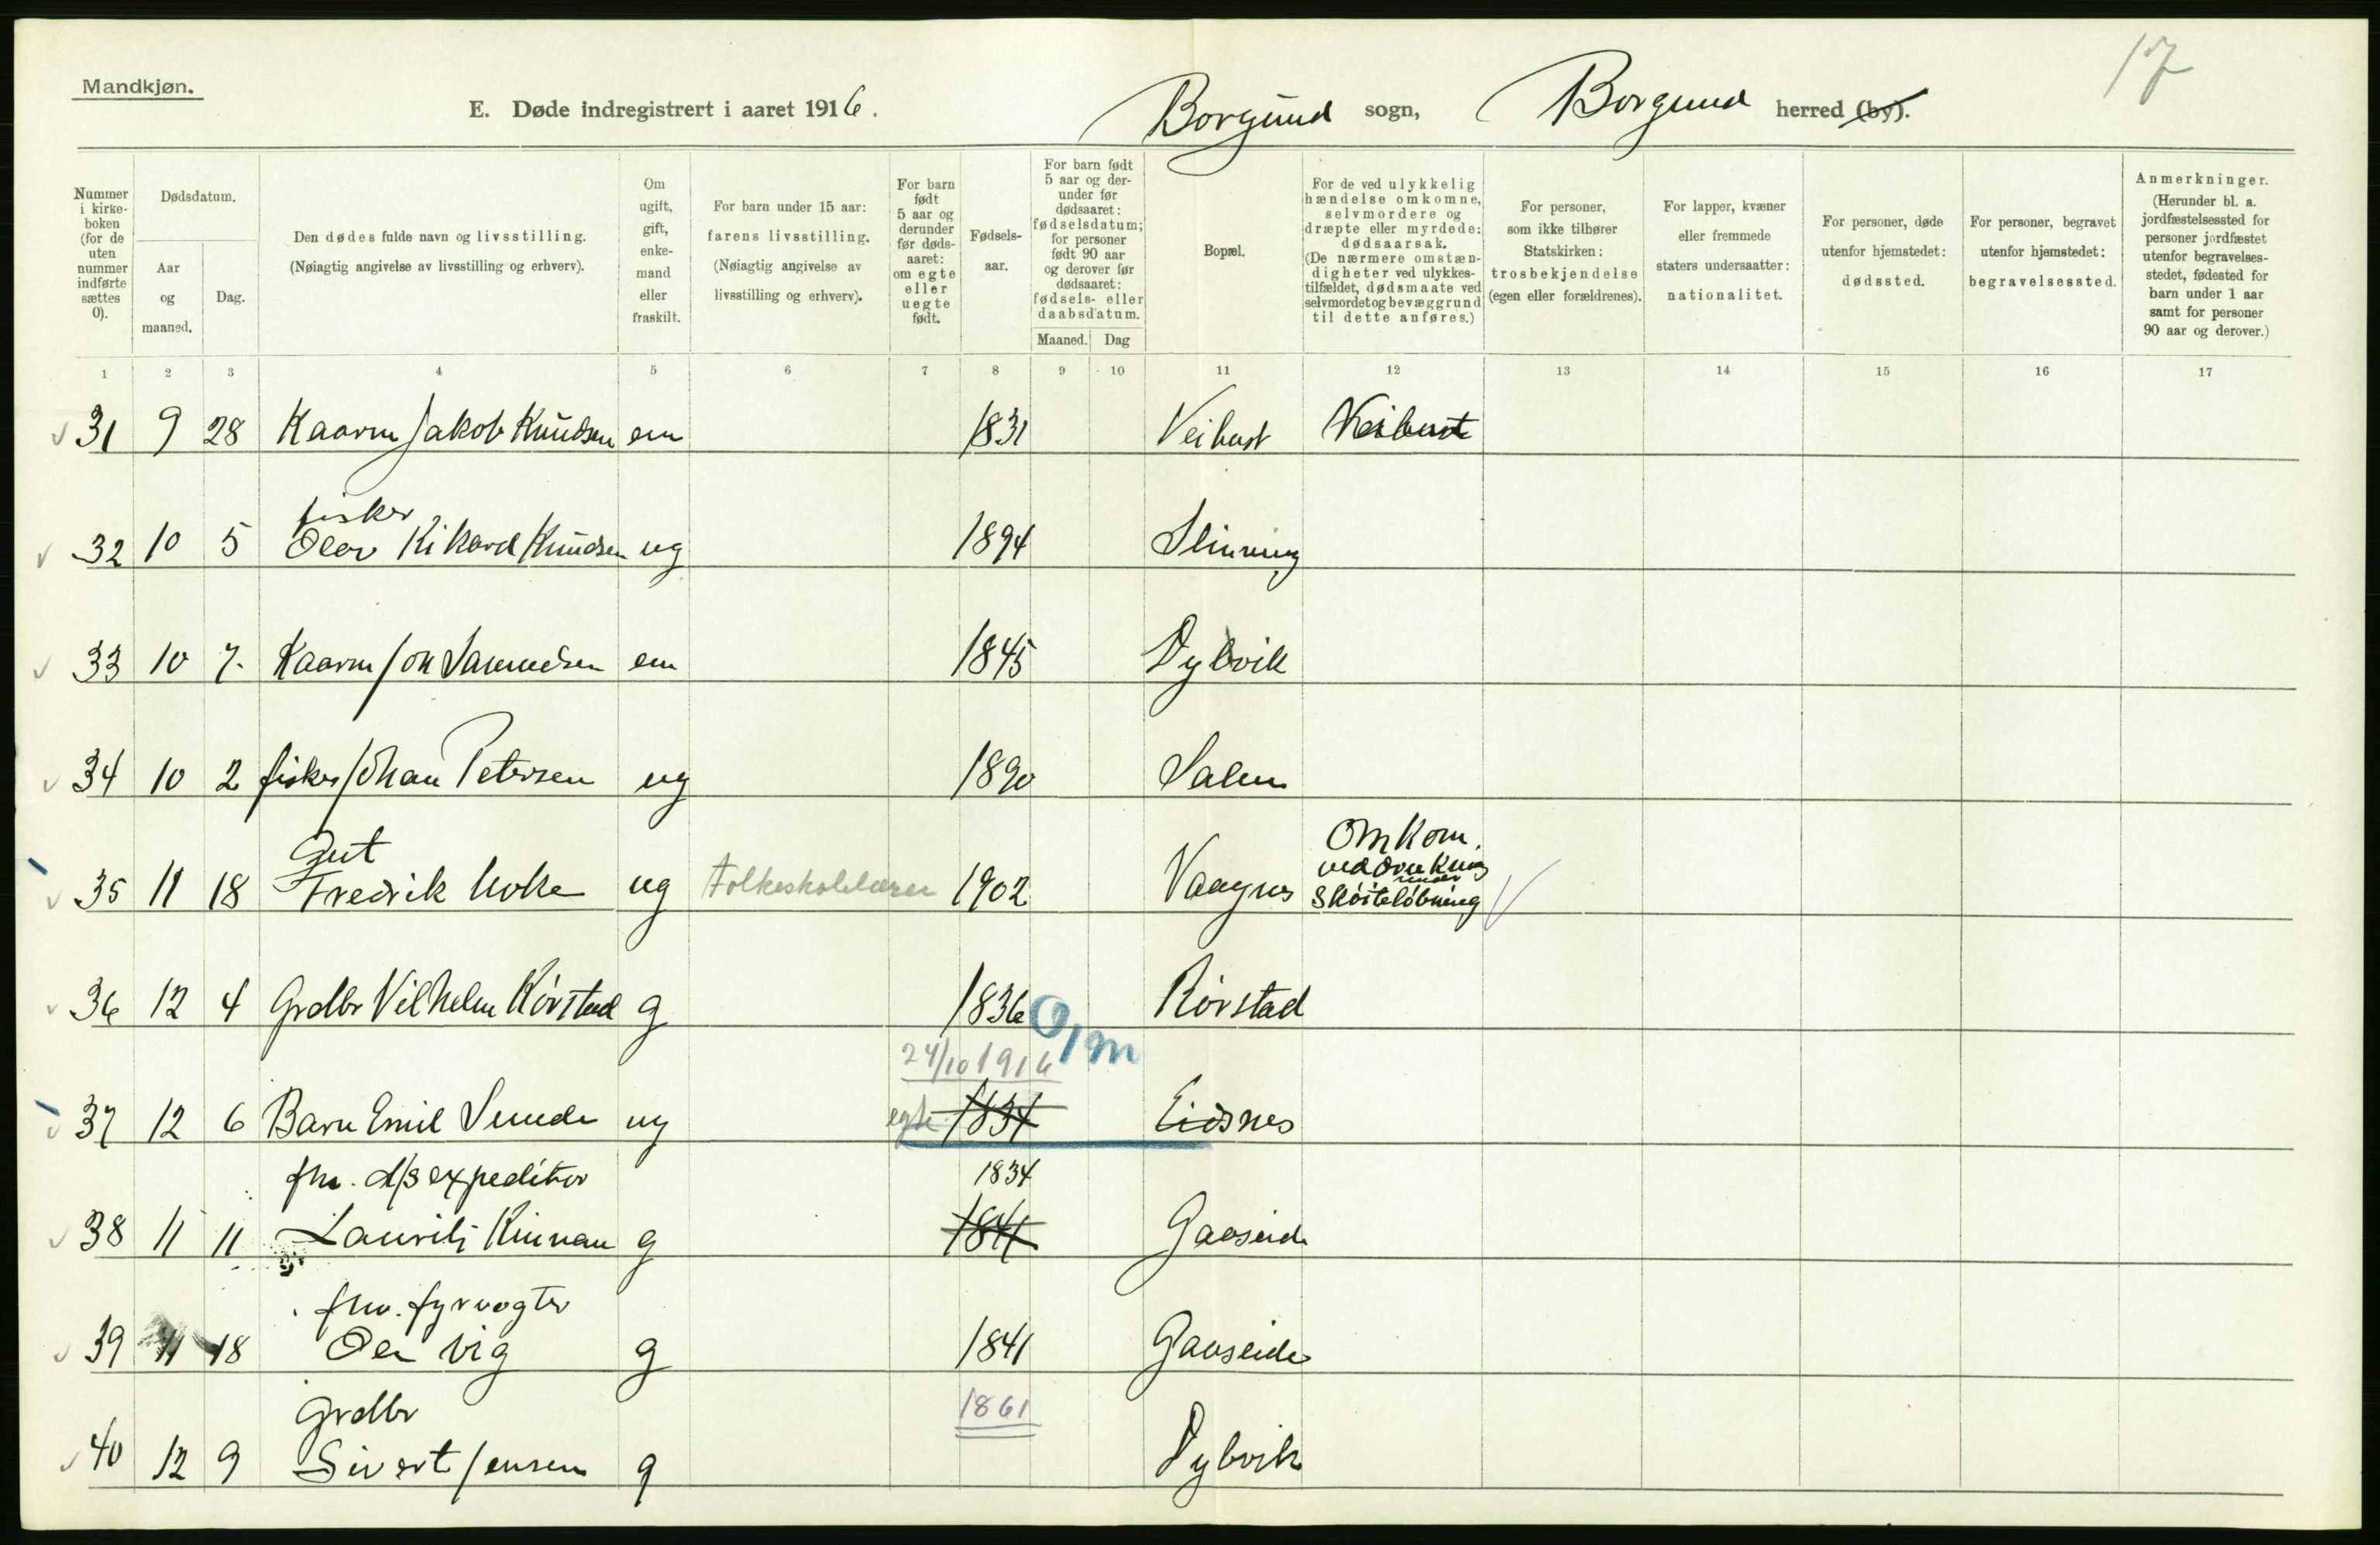 Mandkjøn.
17
E. Døde indregistrert i aaret 1916. Borgund sogn, Borgund herred (by).
Nummer i kirke-boken (for de uten nummer indførte sættes 0).
Dødsdatum.
Aar og maaned.
Dag.
Den dødes fulde navn og livsstilling. (Nøiagtig angivelse av livsstilling og erhverv).
Om ugift, gift, enke-mand eller fraskilt.
For barn under 15 aar: farens livsstilling. (Nøiagtig angivelse av livsstilling og erhverv).
For barn født 5 aar og derunder før døds-aaret: om egte eller uegte født.
Fødsels-aar.
For barn født 5 aar og der-under før dødsaaret: fødselsdatum; for personer født 90 aar og derover før dødsaaret: fødsels- eller daabsdatum.
Maaned. Dag
Bopæl.
For de ved ulykkelig hændelse omkomne, selvmordere og dræpte eller myrdede: dødsaarsak. (De nærmere omstæn-digheter ved ulykkes-tilfældet, dødsmaate ved selvmordet og bevæggrund til dette anføres.)
For personer, som ikke tilhører Statskirken: trosbekjendelse (egen eller forældrenes).
For lapper, kvæner eller fremmede staters undersaatter: nationalitet.
For personer, døde utenfor hjemstedet: dødssted.
For personer, begravet utenfor hjemstedet: begravelsessted.
Anmerkninger. (Herunder bl. a. jordfæstelsessted for personer jordfæstet utenfor begravelses-stedet, fødested for barn under 1 aar samt for personer 90 aar og derover.)
1 2 3 4 5 6 7 8 9 10 11 12 13 14 15 16 17
31 9 28 Kaarm Jakob Knudsen em 1831 Veibust Veibust
fisker
32 10 5 Olav Rikard Knudsen ug 1894 Slinning
33 10 7. Kaarm Jon Samuelsen em 1845 Dybvik
34 10 2 fisker Johan Petersen ug 1890 Salen
Gut
Omkom.
ved drukning
under
35 11 18 Fredrik Holte ug Folkeskolelærer 1902 Vaagnes Skøiteløbning
36 12 4 Grdbr Vilhelm Rørstad g 1836 Rørstad
0/m
24/10 1916
37 12 6 Barn Emil Sunde ug egte 1834 Eidsnes
fhv. d/s expeditør 1834
38 11 11 Laurits Kinnan g 1841 Gaaseide
fhv. fyrvogter
39 11 18 Ole Vig g 1841 Gaaseide
Grdbr 1861
40 12 9 Sivert Jensen g Dybvik